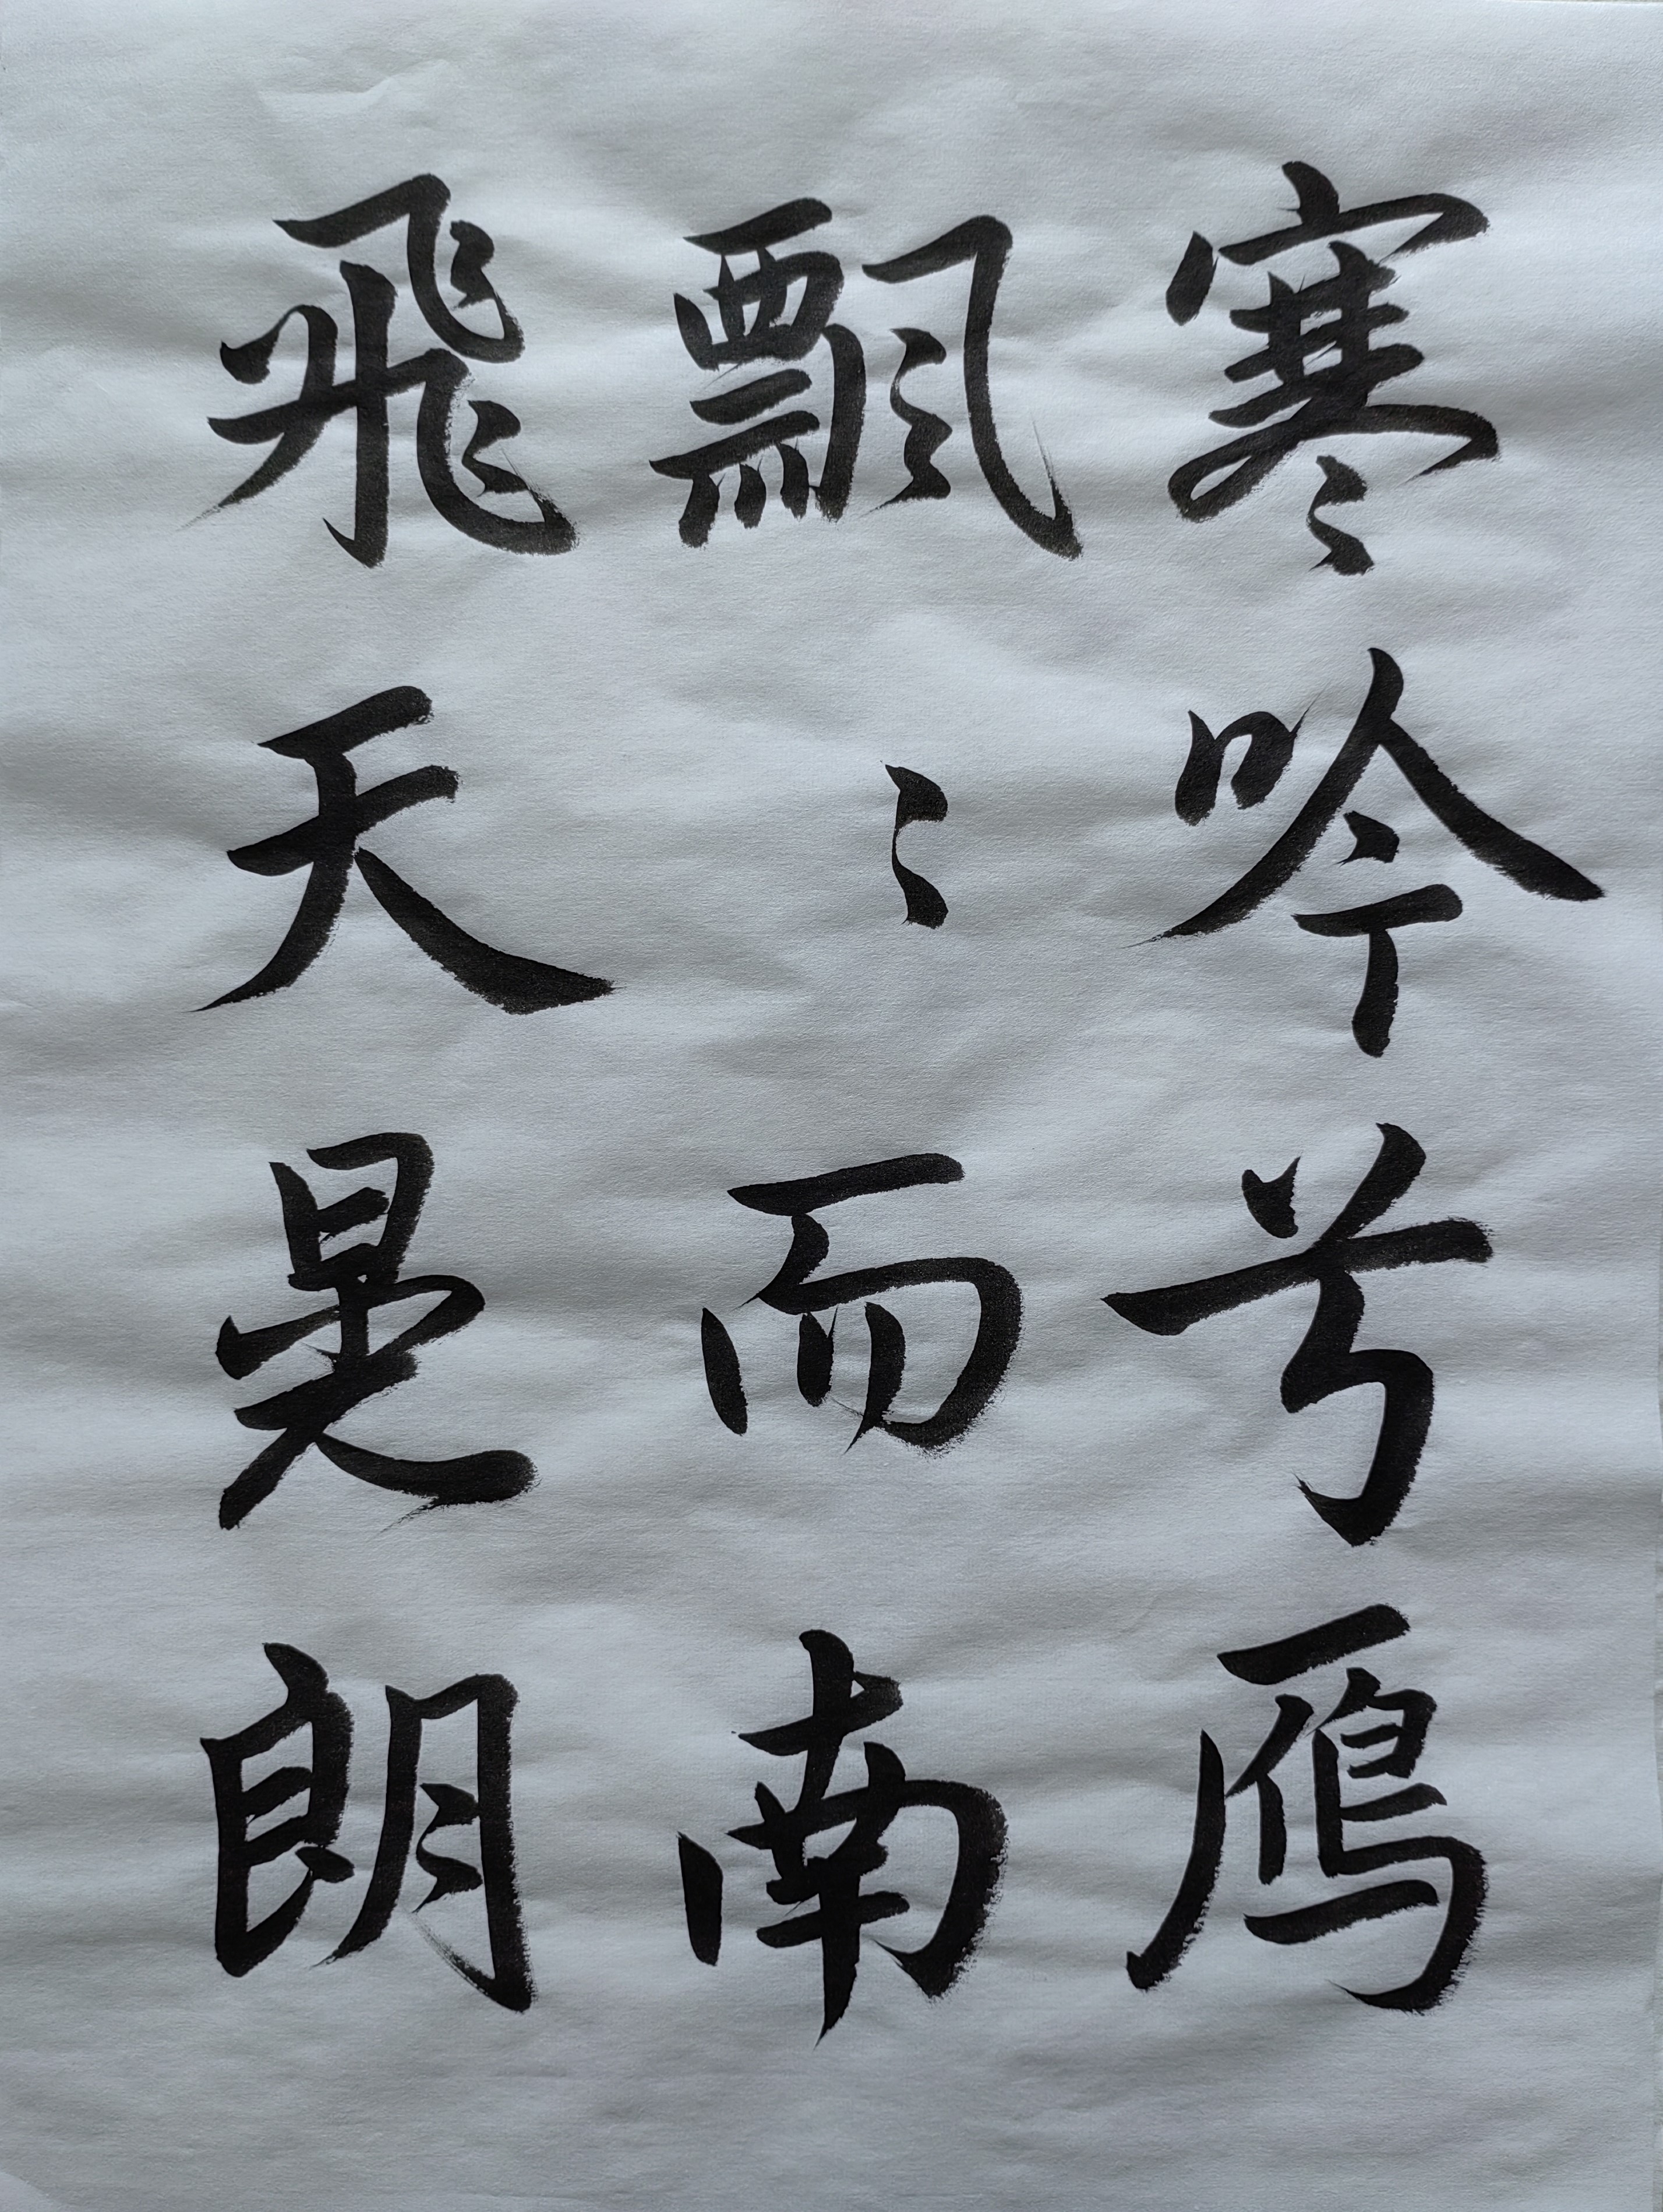 寒吟兮鴈
飄〻而南
飛天晃朗